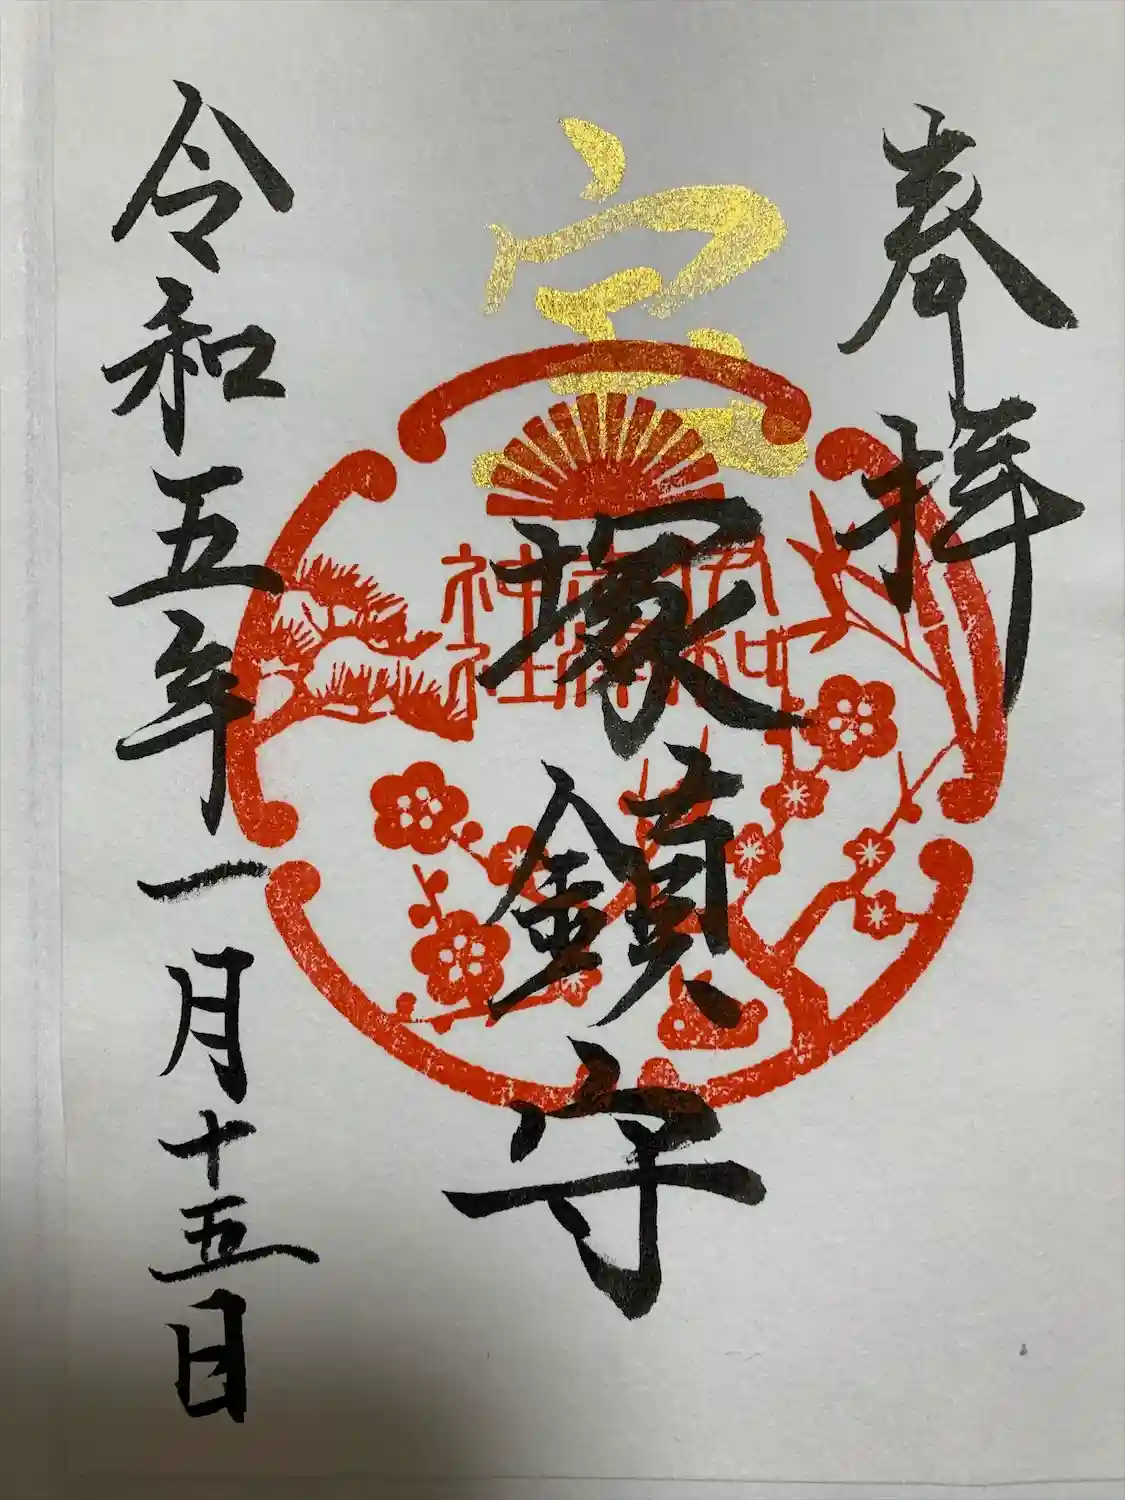 奉拝
宝
塚鎮守
令和五年一月十五日